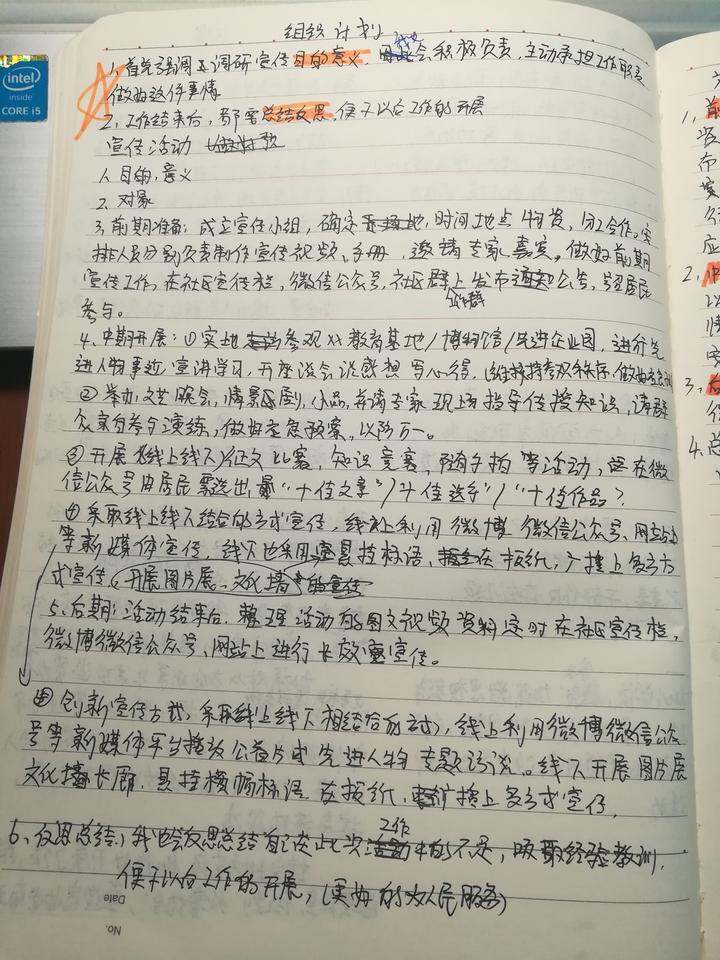 组织计划
1、首先强调及调研宣传目的意义,我会积极负责,主动承担工作职责
做好这件事情
2、工作结束后,都需总结反思,便于以后工作的开展
宣传活动
1、目的,意义
2、对象
3、前期准备:成立宣传小组,确定时间地点物资,分工合作。安
排人员分别负责制作宣传视频、手册,邀请专家嘉宾。做好前期
宣传工作,在社区宣传栏,微信公众号,社区群上发布公告,号召居民
工作群
参与。
4、中期开展:①实地参观××教育基地/博物馆/先进企业园,进行先
进人物事迹宣讲学习,开座谈会谈感想写心得,维持秩序,做好
②举办文艺晚会,情景短剧,小品,并请专家现场指导传授知识,请群
众亲自参与演练,做好应急预案,以防万一。
③开展(线上线下)征文比赛,知识竞赛,随手拍等活动,在微
信公众号由居民票选出最"十佳文章"/十佳选手"/"十佳作品"
④采取线上线下结合的方式宣传,线上利用微博微信公众号、网站上
等新媒体宣传,线下也采用悬挂标语、在报纸,广播上多方
式宣传。(开展图片展、文化墙的宣传
5、后期:活动结束后,整理活动的图文视频资料定时在社区宣传栏,
微博微信公众号、网站上进行长效宣传。
④创新宣传方式,采取线上线下相结合的方式,线上利用微博微信公众
号等新媒体平台播放公益片或先进人物专题访谈。线下开展图片展
文化长廊,悬挂横幅标语在报纸,广播上多方式宣传,
6、反思总结,我也会反思总结自己在此次工作中的不足,吸取经验教训,
便于以后工作的开展,(更好的为人民服务)
Date
No.
intel
inside
CORE i5
1、
2、
3、
4、